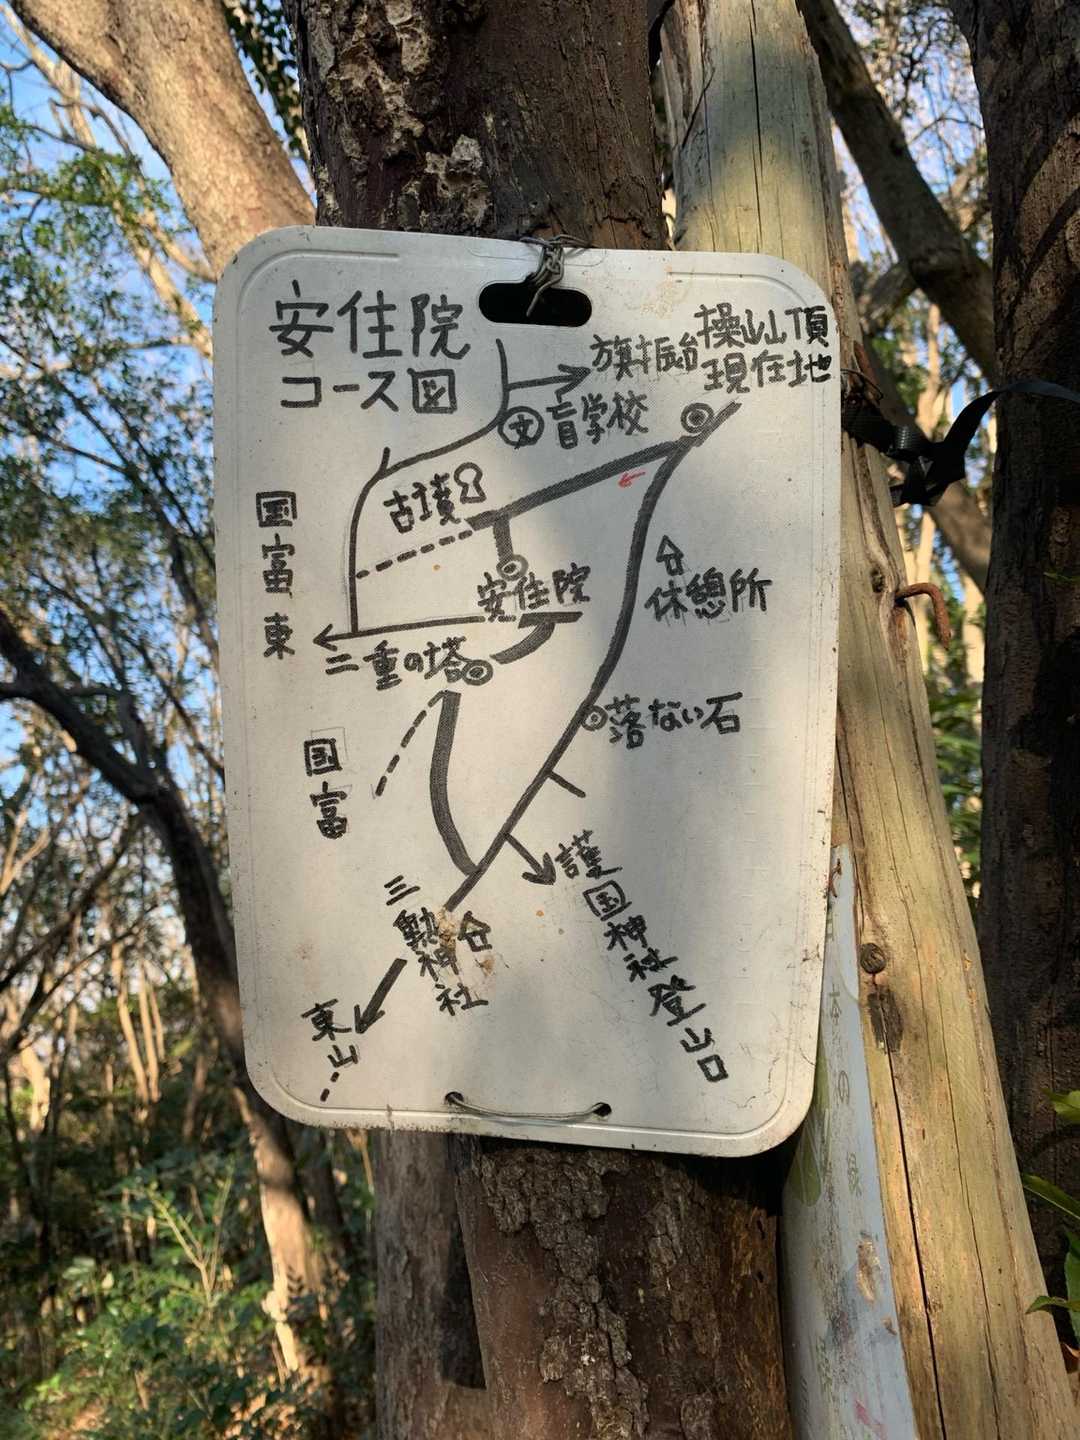 安住院
コース図
操山山頂
現在地
旗振台
文
盲学校
古墳
国富東
安住院
休憩所
二重の塔
落ない石
国富
護国神社登山口
三勲神社
東山